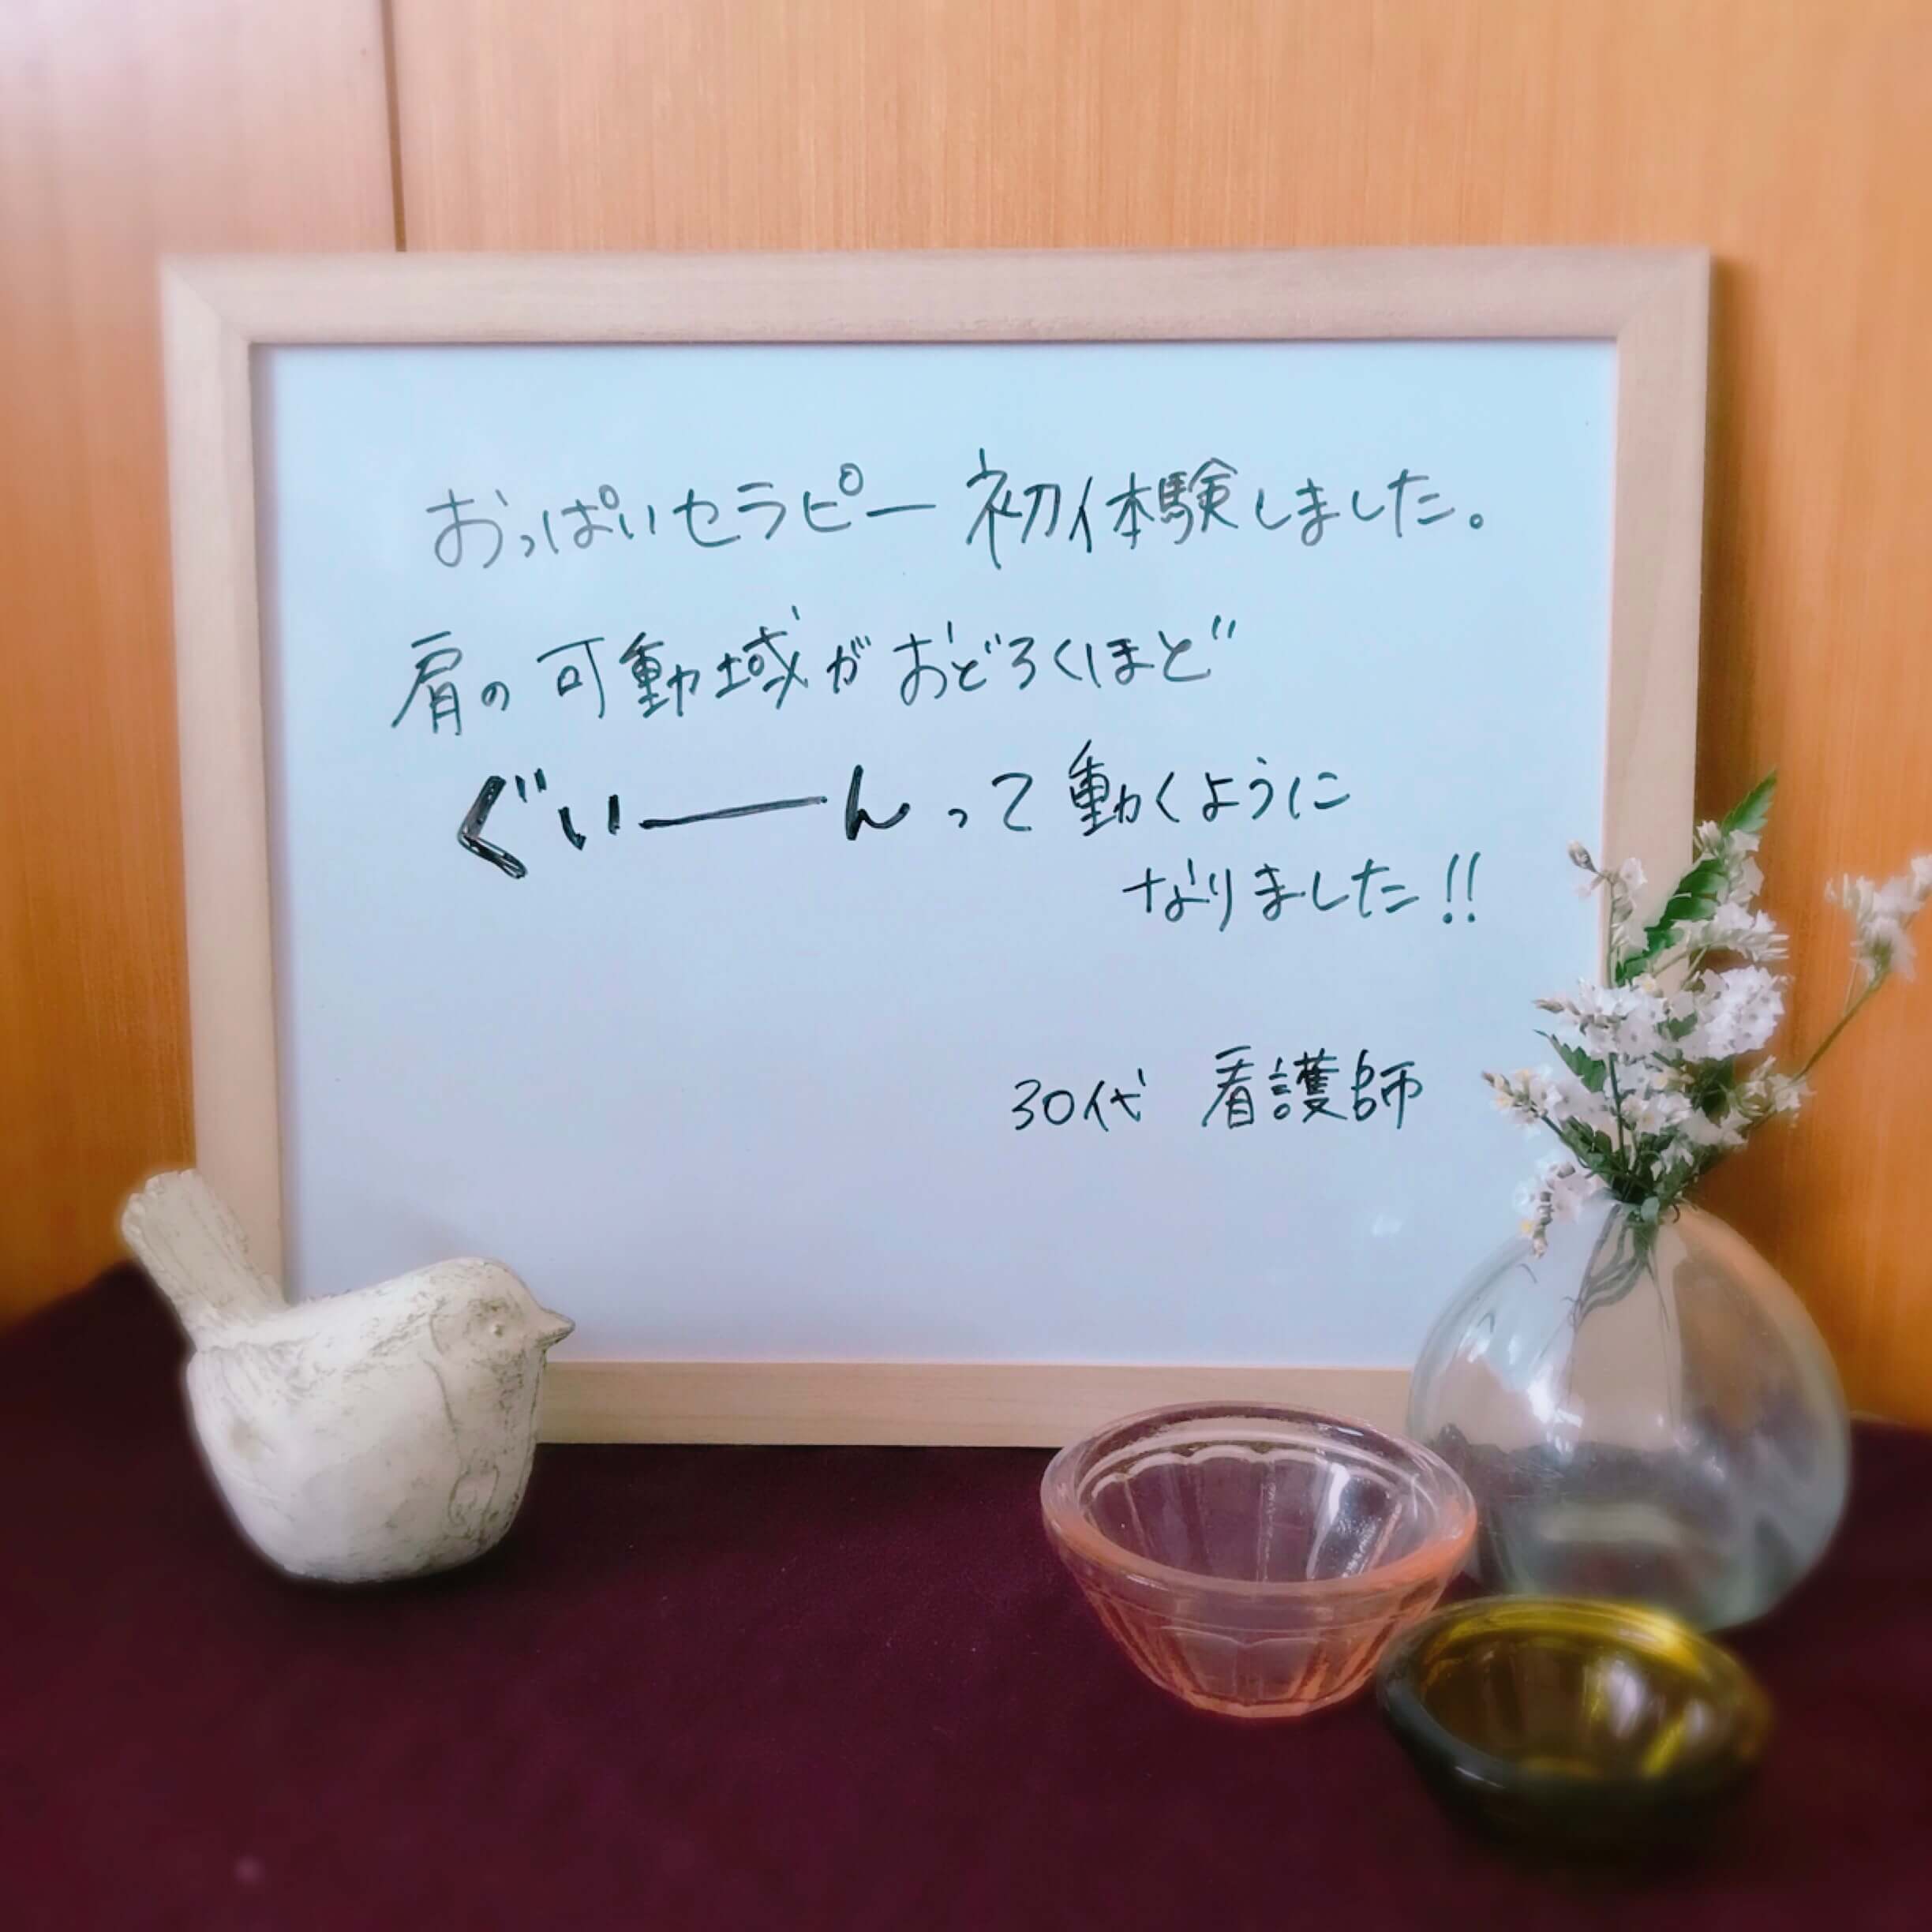 おっぱいセラピー初体験しました。
肩の可動域がおどろくほど
ぐいーんって動くように
なりました!!
30代 看護師